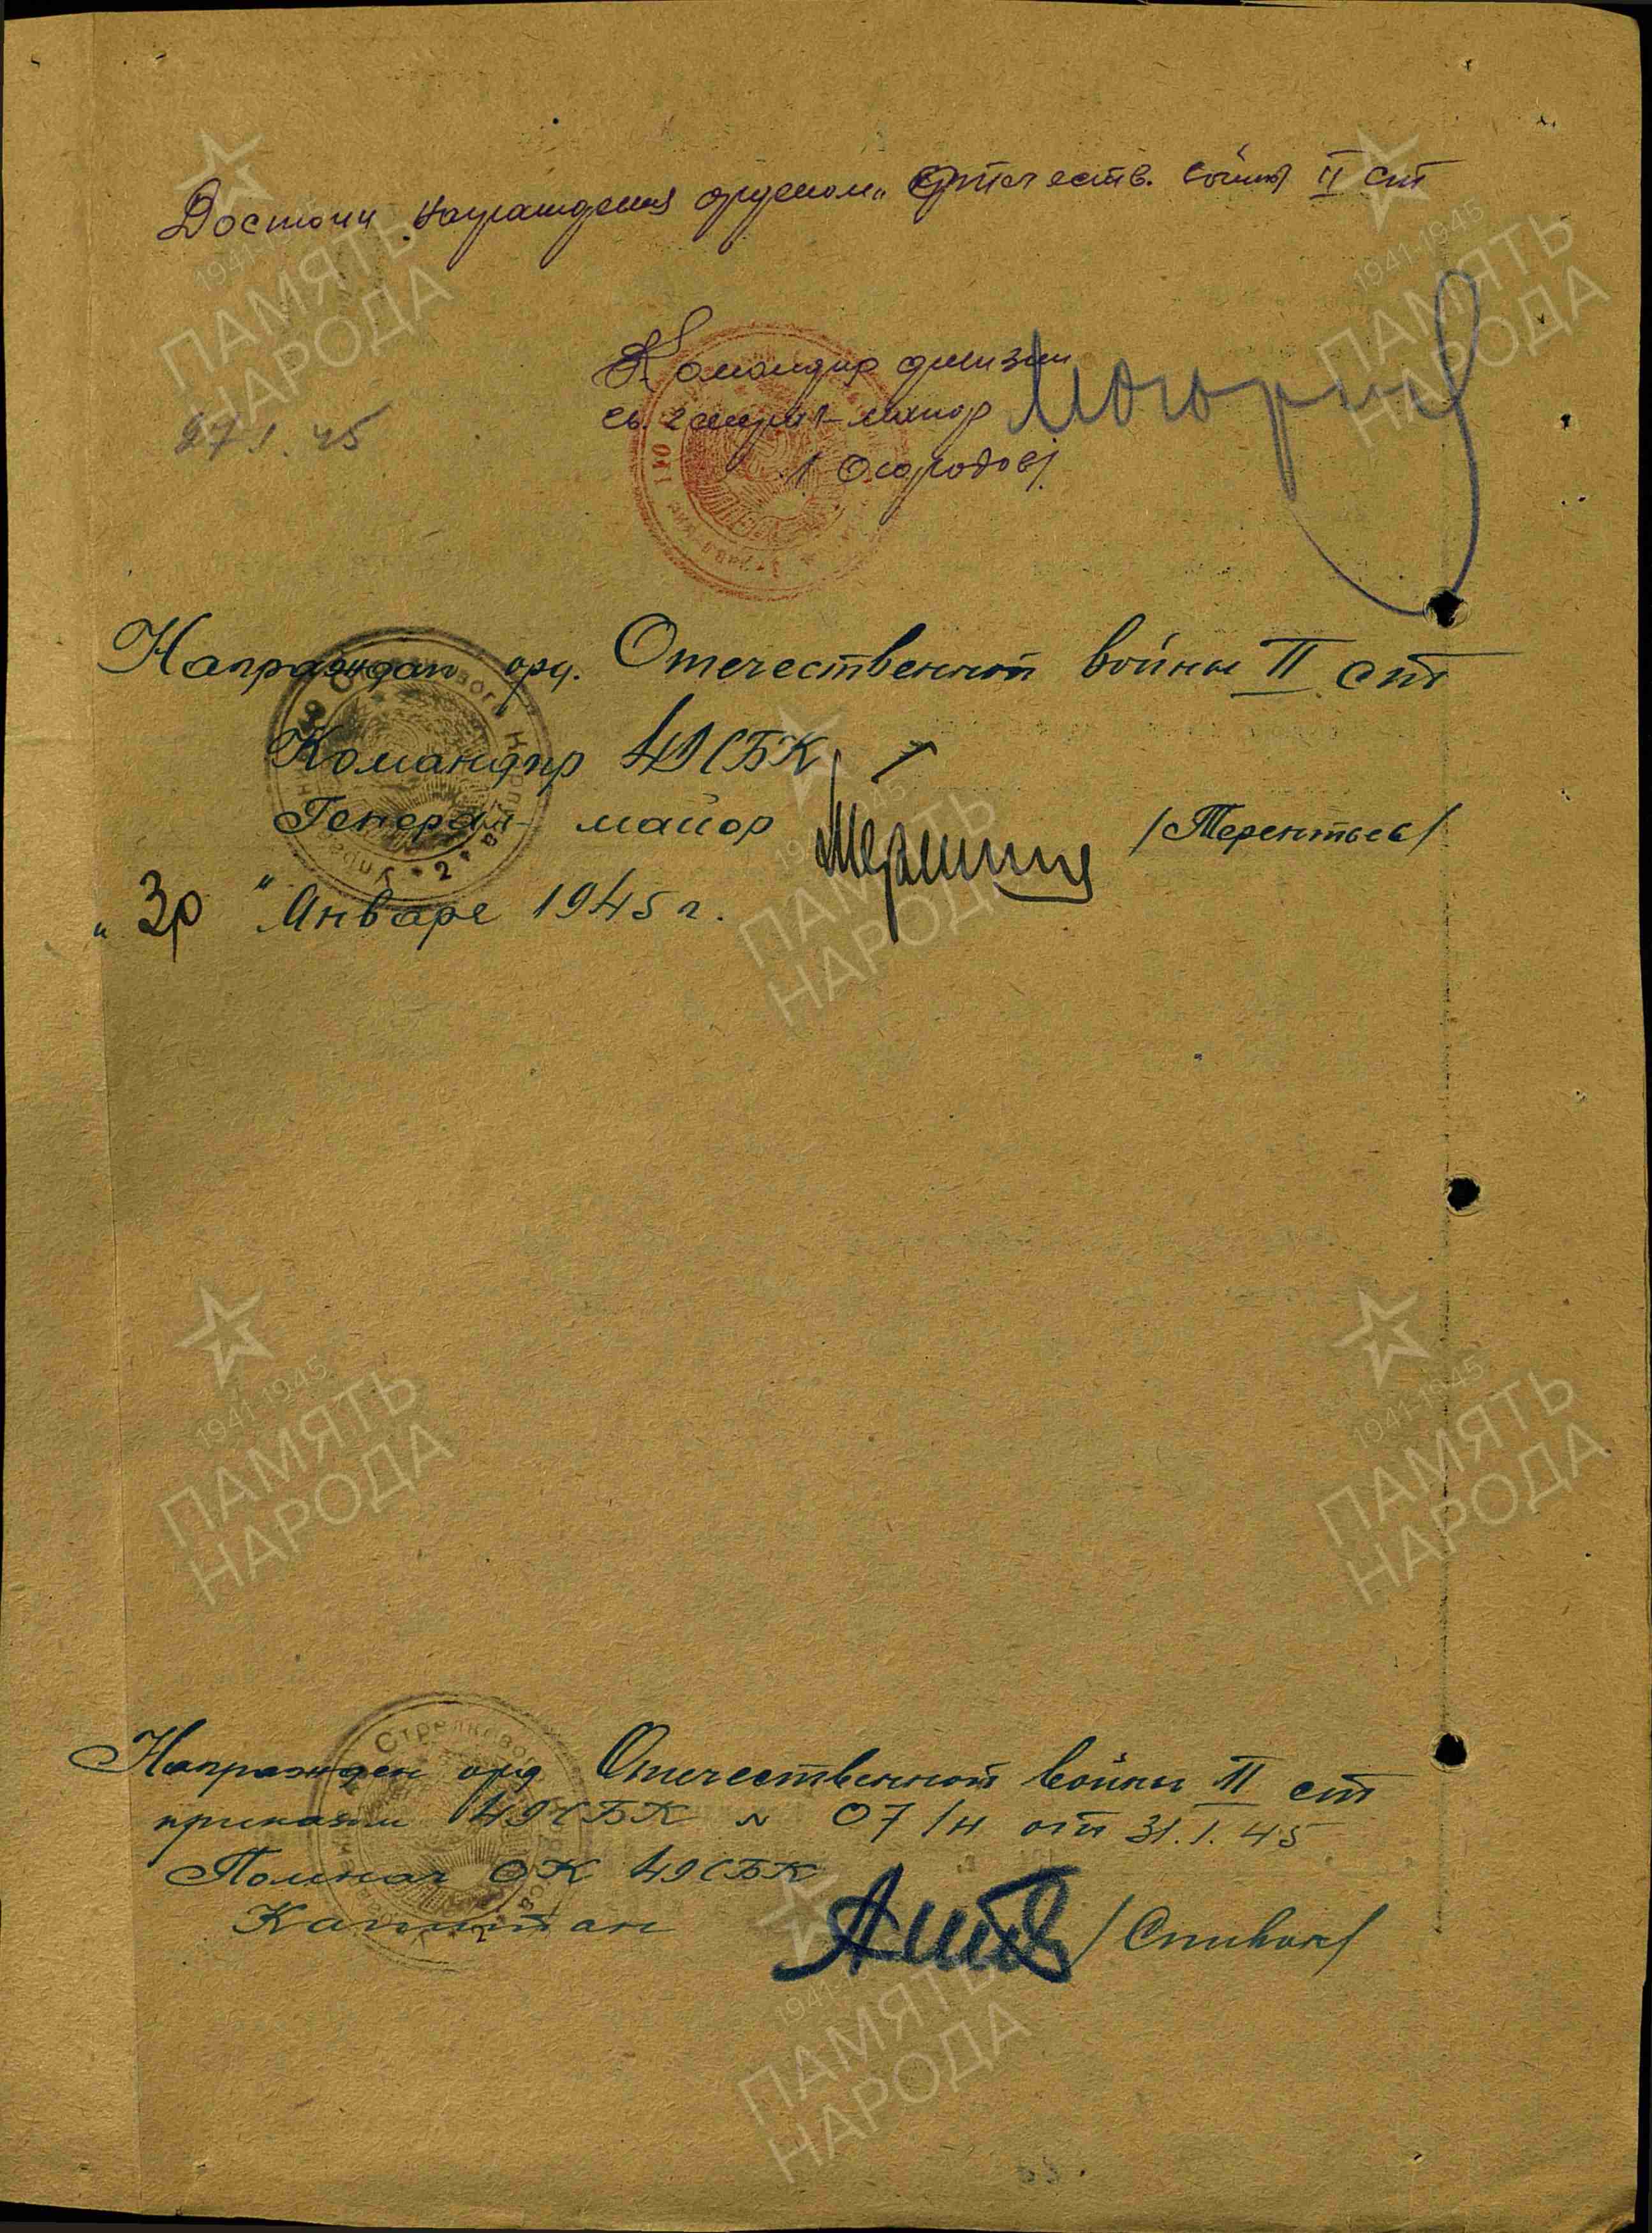 Достоин награждения орденом „Отечеств. войны II ст
Командир дивизии
гв. генерал-майор
/Огородов/
27.1.45
Награждаю орд. Отечественной войны II ст
Командир 49СБК
Генерал-майор /Терентьев/
„30" Январе 1945 г.
Награжден орд Отечественной войны II ст
приказом 49СБК № 07/н от 31.1.45
Помнач ОК 49СБК
Капитан /Спивак/
1941-1945
ПАМЯТЬ
НАРОДА
1941-1945
ПАМЯТЬ
НАРОДА
1941-1945
ПАМЯТЬ
НАРОДА
1941-1945
ПАМЯТЬ
НАРОДА
1941-1945
ПАМЯТЬ
НАРОДА
1941-1945
ПАМЯТЬ
НАРОДА